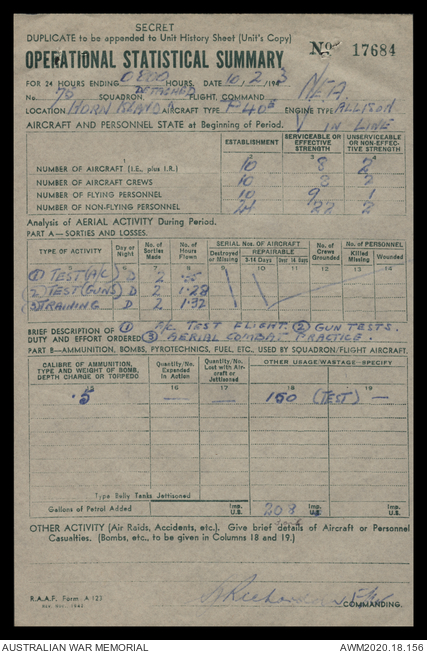 SECRET
DUPLICATE to be appended to Unit History Sheet (Unit's Copy)
OPERATIONAL STATISTICAL SUMMARY
No. 17684
FOR 24 HOURS ENDING 0800 HOURS. DATE 10.2.1943
DETACHED
No. 76 SQUADRON FLIGHT, COMMAND NEA
LOCATION HORN ISLAND AIRCRAFT TYPE P40E ENGINE TYPE ALLISON
IN LINE
AIRCRAFT AND PERSONNEL STATE at Beginning of Period.
ESTABLISHMENT SERVICEABLE OR EFFECTIVE STRENGTH UNSERVICEABLE OR NON-EFFECTIVE STRENGTH
1 2 3 4
NUMBER OF AIRCRAFT (I.E., plus I.R.) 10 8 2
NUMBER OF AIRCRAFT CREWS 10 8 2
NUMBER OF FLYING PERSONNEL 10 9 1
NUMBER OF NON-FLYING PERSONNEL 24 22 2
Analysis of AERIAL ACTIVITY During Period.
PART A—SORTIES AND LOSSES.
TYPE OF ACTIVITY Day or Night No. of Sorties Made No. of Hours Flown SERIAL NOS. OF AIRCRAFT Destroyed or Missing REPAIRABLE 3-14 Days Over 14 days No. of Crews Grounded No. of PERSONNEL Killed Missing Wounded
① TEST (A/C) D 2
② TEST (GUNS) D 2 1.28
③ TRAINING D 2 1.32
BRIEF DESCRIPTION OF ① A/C TEST FLIGHT. ② GUN TESTS.
DUTY AND EFFORT ORDERED ③ AERIAL COMBAT PRACTICE.
PART B—AMMUNITION, BOMBS, PYROTECHNICS, FUEL, ETC., USED BY SQUADRON/FLIGHT AIRCRAFT.
CALIBRE OF AMMUNITION, TYPE AND WEIGHT OF BOMB, DEPTH CHARGE OR TORPEDO Quantity/No. Expended in Action Quantity/No. Lost with Aircraft or Jettisoned OTHER USAGE/WASTAGE—SPECIFY
15 16 17 18 19
.5 — — 150 (TEST) —
Type Belly Tanks Jettisoned
Gallons of Petrol Added Imp. U.S. 208 Imp. U.S. Imp. U.S.
OTHER ACTIVITY (Air Raids, Accidents, etc.). Give brief details of Aircraft or Personnel
Casualties. (Bombs, etc., to be given in Columns 18 and 19.)
COMMANDING.
R.A.A.F. Form A 123
AUSTRALIAN WAR MEMORIAL AWM2020.18.156